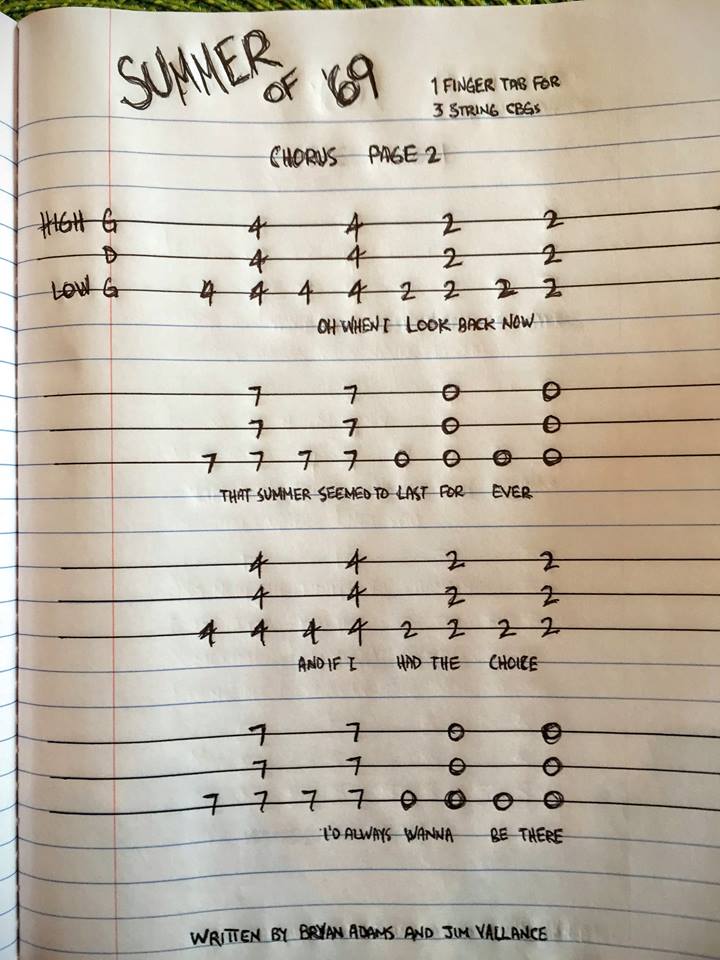 SUMMER OF '69
1 FINGER TAB FOR
3 STRING CBGs
CHORUS PAGE 2
HIGH G 4 4 2 2
D 4 4 2 2
LOW G 4 4 4 4 2 2 2 2
OH WHEN I LOOK BACK NOW
7 7 0 0
7 7 0 0
7 7 7 7 0 0 0 0
THAT SUMMER SEEMED TO LAST FOR EVER
4 4 2 2
4 4 2 2
4 4 4 4 2 2 2 2
AND IF I HAD THE CHOICE
7 7 0 0
7 7 0 0
7 7 7 7 0 0 0 0
I'D ALWAYS WANNA BE THERE
WRITTEN BY BRYAN ADAMS AND JIM VALLANCE